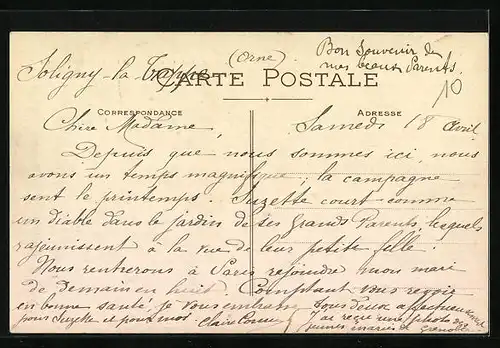 (Orne)
Soligny-la-Trappe
Bon Souvenir de
mes beaux Parents.
10
CARTE POSTALE
CORRESPONDANCE
ADRESSE
Samedi 18 Avril
Chère Madame,
Depuis que nous sommes ici, nous
avons un temps magnifique; la campagne
sent le printemps. Suzette court comme
un diable dans le jardin de ses Grands Parents, lesquels
rajeunissent à la vue de leur petite fille.
Nous rentrerons à Paris rejoindre mon mari
de Demain en huit. Comptant vous revoir
en bonne santé, je vous embrasse tous deux affectueusement
pour Suzette et pour moi. Claire
J'ai reçu une photo des
jeunes mariés de Grenoble